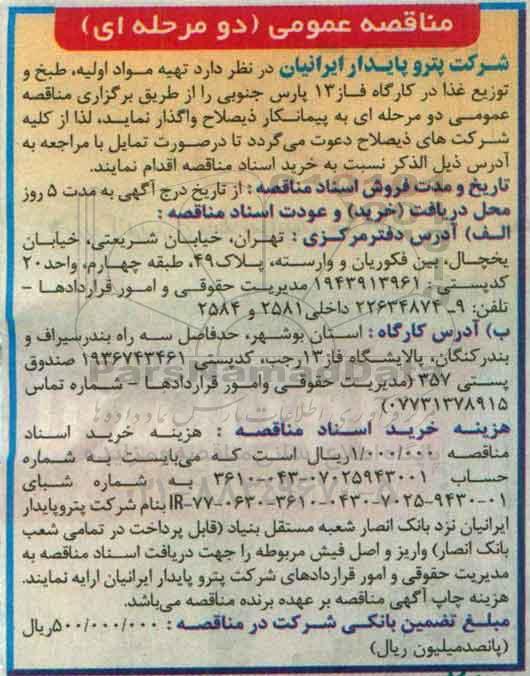 مناقصه عمومی (دو مرحله ای)
شرکت پترو پایدار ایرانیان در نظر دارد تهیه مواد اولیه، طبخ و
توزیع غذا در کارگاه فاز۱۳ پارس جنوبی را از طریق برگزاری مناقصه
عمومی دو مرحله ای به پیمانکار ذیصلاح واگذار نماید، لذا از کلیه
شرکت های ذیصلاح دعوت می‌گردد تا درصورت تمایل با مراجعه به
آدرس ذیل الذکر نسبت به خرید اسناد مناقصه اقدام نمایند.
تاریخ و مدت فروش اسناد مناقصه : از تاریخ درج آگهی به مدت ۵ روز
محل دریافت (خرید) و عودت اسناد مناقصه :
الف) آدرس دفترمرکزی : تهران، خیابان شریعتی، خیابان
یخچال، بین فکوریان و وارسته، پلاک۴۹، طبقه چهارم، واحد۲۰
کدپستی : ۱۹۴۳۹۱۳۹۶۱ مدیریت حقوقی و امور قراردادها -
تلفن: ۹ـ ۲۲۶۳۴۸۷۴ داخلی۲۵۸۱ و ۲۵۸۴
ب) آدرس کارگاه : استان بوشهر، حدفاصل سه راه بندرسیراف و
بندرکنگان، پالایشگاه فاز۱۳رجب، کدپستی ۱۹۳۶۷۴۳۴۶۱ صندوق
پستی ۳۵۷ (مدیریت حقوقی وامور قراردادها - شماره تماس
۰۷۷۳۱۳۷۸۹۱۵)
هزینه خرید اسناد مناقصه : هزینه خرید اسناد
مناقصه ۱/۰۰۰/۰۰۰ریال است که می‌بایست به شماره
حساب ۳۶۱۰-۰۴۳-۰۷۰۲۵۹۴۳۰۰۱ به شماره شبای
IR-۷۷-۰۶۳۰-۳۶۱۰-۰۴۳۰-۷۰۲۵-۹۴۳۰-۰۱ بنام شرکت پتروپایدار
ایرانیان نزد بانک انصار شعبه مستقل بنیاد (قابل پرداخت در تمامی شعب
بانک انصار) واریز و اصل فیش مربوطه را جهت دریافت اسناد مناقصه به
مدیریت حقوقی و امور قراردادهای شرکت پترو پایدار ایرانیان ارایه نمایند.
هزینه چاپ آگهی مناقصه بر عهده برنده مناقصه می‌باشد.
مبلغ تضمین بانکی شرکت در مناقصه : ۵۰۰/۰۰۰/۰۰۰ریال
(پانصدمیلیون ریال)